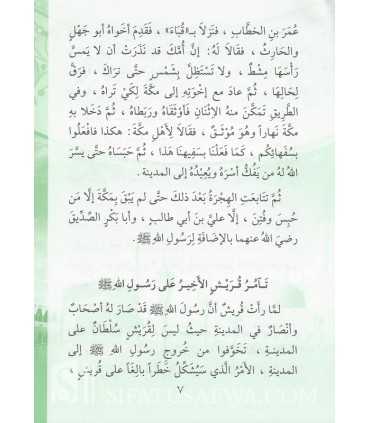 عُمَرَ بنِ الخطَّابِ ، فَنَزَلَا بـ«قُبَاءَ» ، فَقَدِمَ أَخَوَاهُ أبو جَهْلٍ
والحَارِثُ ، فَقالَا لَهُ: إنَّ أُمَّكَ قد نَذَرَتْ أن لا يَمَسَّ
رَأْسَهَا مِشْطٌ ، ولا تَسْتَظِلَّ بِشَمْسٍ حتَّى تراكَ ، فَرَقَّ
لِحَالِهَا ، ثُمَّ عادَ مع إخْوَتِهِ إلى مكَّةَ لِكَيْ تَراهُ ، وفي
الطَّرِيقِ تَمَكَّنَ منهُ الِاثْنَانِ فَأَوْثَقَاهُ ورَبَطَاهُ ، ثُمَّ دَخَلا بهِ
مكَّةَ نَهاراً وهُوَ مُوْثَقٌ ، فقَالَا لِأَهْلِ مكَّةَ: هكذا فافْعَلُوا
بِسُفَهائِكُم ، كَمَا فَعَلْنَا بسَفِيهِنَا هَذَا ، ثُمَّ حَبَسَاهُ حتَّى يسَّرَ
اللهُ لهُ من يَفُكُّ أسْرَهُ ويُعِيْدُهُ إلى المدينة .
ثُمَّ تتَابَعتِ الهِجْرَةُ بَعْدَ ذلكَ حتَّى لم يَبْقَ بِمَكَّةَ إلَّا مَن
حُبِسَ وفُتِنَ ، إلَّا عليَّ بنَ أبي طالبٍ ، وأبا بَكْرٍ الصِّدِّيقَ
رضيَ اللهُ عنهما بالإضَافَةِ لِرَسُولِ اللهِ ﷺ .
تَآمُرُ قُرَيْشٍ الأَخِيرُ عَلَى رَسُولِ اللهِ ﷺ
لمَّا رأَتْ قُريشٌ أنَّ رسُولَ اللهِ ﷺ قَدْ صَارَ لهُ أصْحَابٌ
وأَنْصَارٌ في المدينةِ حيثُ ليسَ لِقُرَيْشٍ سُلْطَانٌ على
المدينـةِ ، تَخَوَّفوا من خُروجِ رسُولِ اللهِ ﷺ إلى
المدينةِ ، الأمْرُ الَّذي سَيُشَكِّلُ خَطَراً بالِغاً على قُريشٍ ،
٧
SIFATUSAFWA.COM